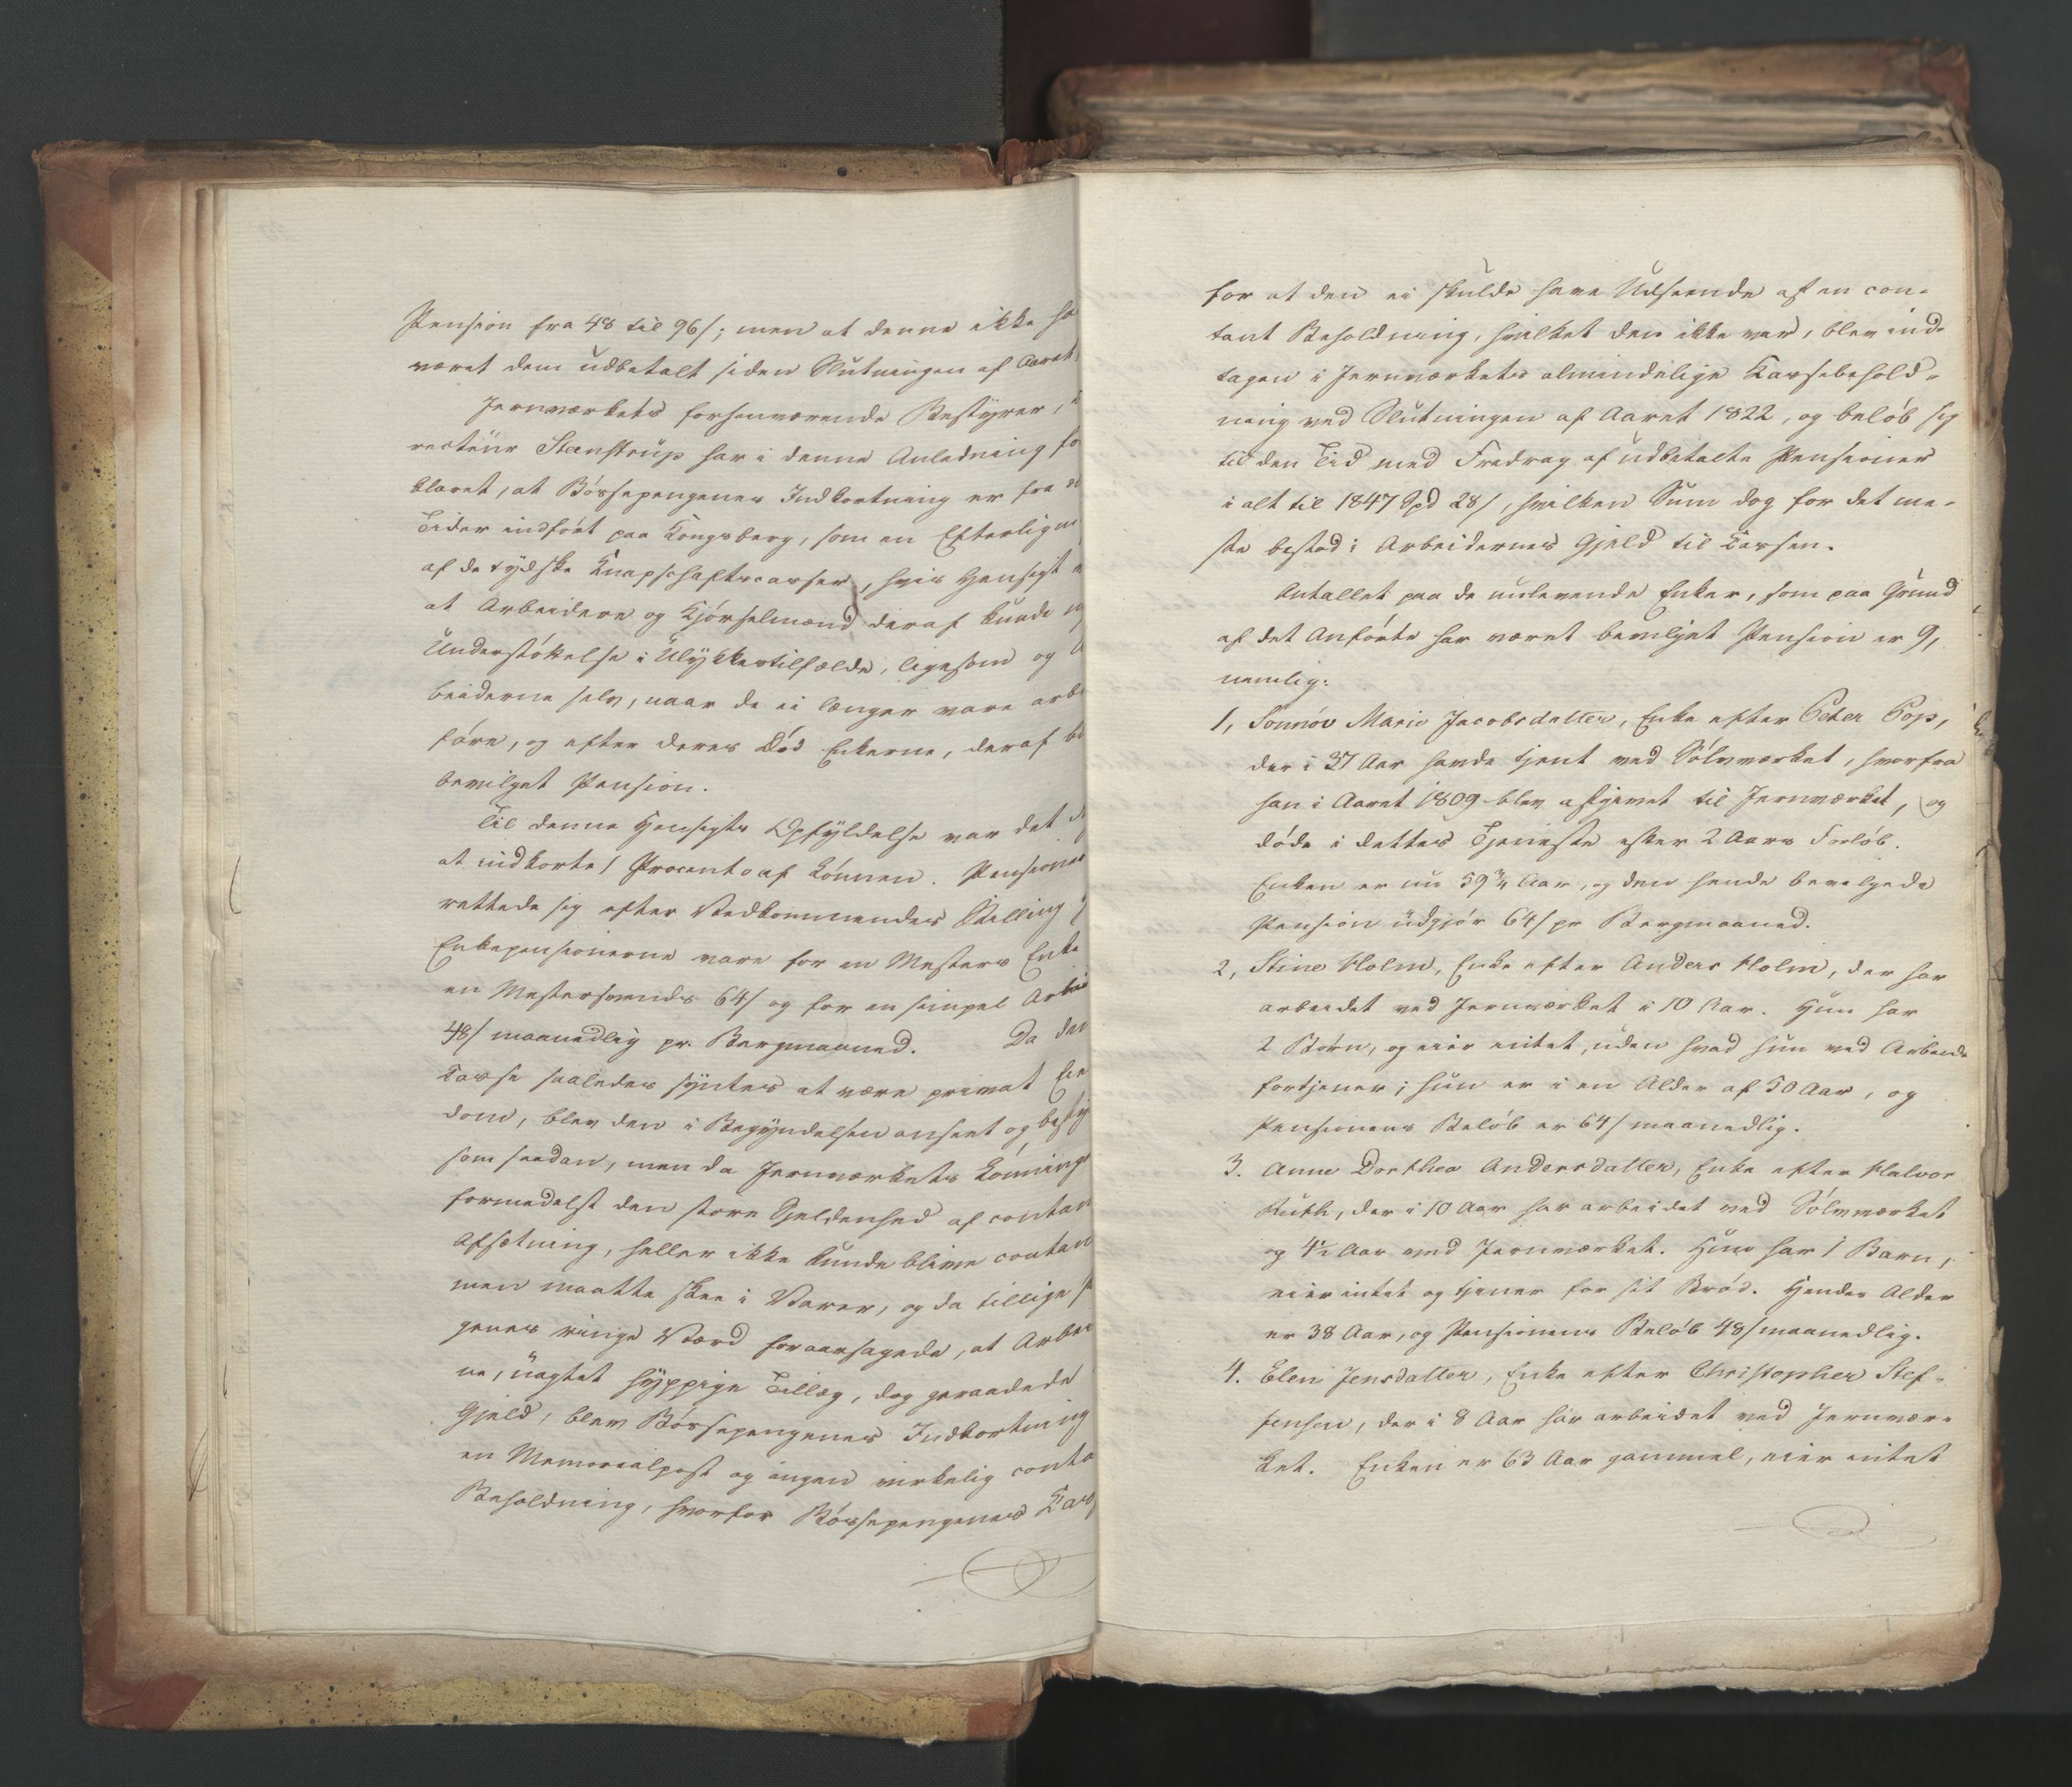 Pension fra 48 til 96/; men at denne ikke ha
været dem udbetalt siden Slutningen af Aaret
Jernværkets forhenværende Bestyrer,
recteur Stenstrup har i denne Anledning fo
klaret, at Bössepengenes Indkortning er fra
Tider indfört paa Kongsberg, som en Efterlign
af de tydske Knapschaftscasser, hvis Hensigt
at Arbeidere og Kjörselmænd deraf kunde
Understöttelse i Ulykkestilfælde, ligesom og A
beiderne selv, naar de ei længer vare arb
före, og efter deres Död Enkerne, deraf bl
bevilget Pension.
Til denne Hensigts Opfyldelse var det
at indkorte 1 Procento af Lönnen. Pensioner
rettede sig efter Vedkommendes Stilling
Enkepensionerne vare for en Mesters Enke
en Mestersvends 64/ og for en simpel Arbei
48/ maanedlig pr. Bergmaaned. Da den
Casse saaledes syntes at være privat Eien
dom, blev den i Begyndelsen anseet og besty
som saadan, men da Jernværkets Lönning
formedelst den store Sjeldenhed af contan
Afsætning, heller ikke kunde blive contan
men maatte skee i Varer, og da tillige P
genes ringe Værd foraarsagede, at Arbei
ne, uagtet hyppige Tillæg, dog geraadede
Gjeld, blev Bössepengenes Indkortning
en Memorialpost og ingen virkelig conta
Beholdning, hvorfor Bössepengenes Cass
for at den ei skulde have Udseende af en con-
tant Beholdning, hvilket den ikke var, blev ind-
tagen i Jernværkets almindelige Cassebehold-
ning ved Slutningen af Aaret 1822, og belöb sig
til den Tid med Fradrag af udbetalte Pensioner
i alt til 1847 Spd 28/, hvilken Sum dog for det me-
ste bestod i Arbeidernes Gjeld til Cassen.
Antallet paa de nulevende Enker, som paa Grund
af det Anförte har været bevilget Pension er 9,
nemlig:
1, Sönnöv Marie Jacobsdatter, Enke efter Peter Pop,
der i 37 Aar havde tjent ved Sölvværket, hvorfra
han i Aaret 1809 blev afgivet til Jernværket, og
döde i dettes Tjeneste efter 2 Aars Forlöb.
Enken er nu 59¾ Aar, og den hende bevilgede
Pension udgjör 64/ pr Bergmaaned.
2, Stine Holm, Enke efter Anders Holm, der har
arbeidet ved Jernværket i 10 Aar. Hun har
2 Börn, og eier intet, uden hvad hun ved Arbeide
fortjener; hun er i en Alder af 50 Aar, og
Pensionens Belöb er 64/ maanedlig.
3. Anne Dorthea Andersdatter, Enke efter Halvor
Ruth, der i 10 Aar har arbeidet ved Sölvværket
og 4½ Aar ved Jernværket. Hun har 1 Barn,
eier intet og tjener for sit Bröd. Hendes Alder
er 38 Aar, og Pensionens Belöb 48/ maanedlig.
4. Elen Jensdatter, Enke efter Christopher Stef-
fensen, der i 8 Aar har arbeidet ved Jernvær-
ket. Enken er 63 Aar gammel, eier intet